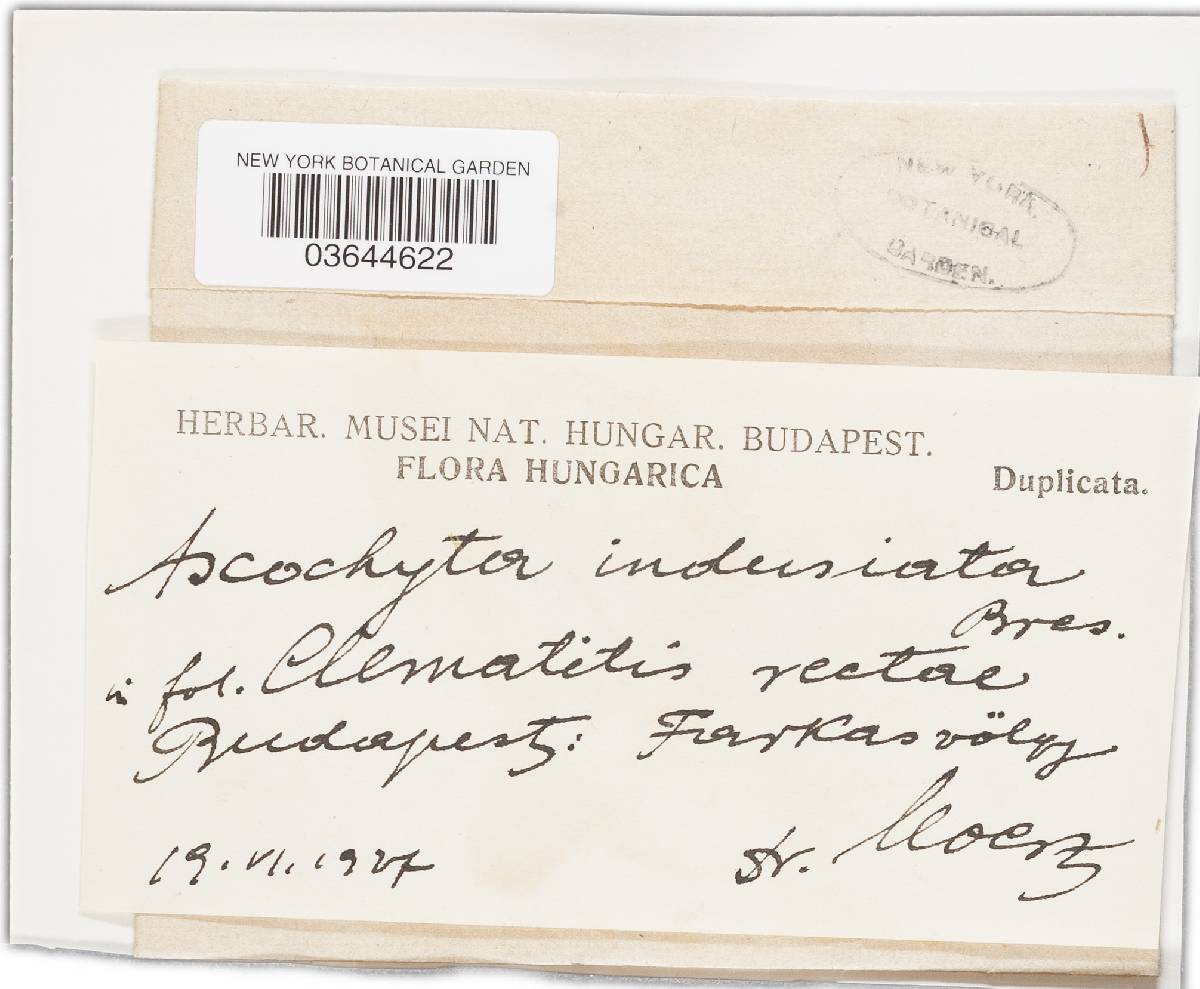 NEW YORK BOTANICAL GARDEN
03644622
NEW YORK
BOTANICAL
GARDEN.
HERBAR. MUSEI NAT. HUNGAR. BUDAPEST.
FLORA HUNGARICA
Duplicata.
Ascochyta indusiata
Bres.
in fol. Clematitis rectae
Budapest: Farkasvölgy
19. VI. 1927
Dr. Moesz